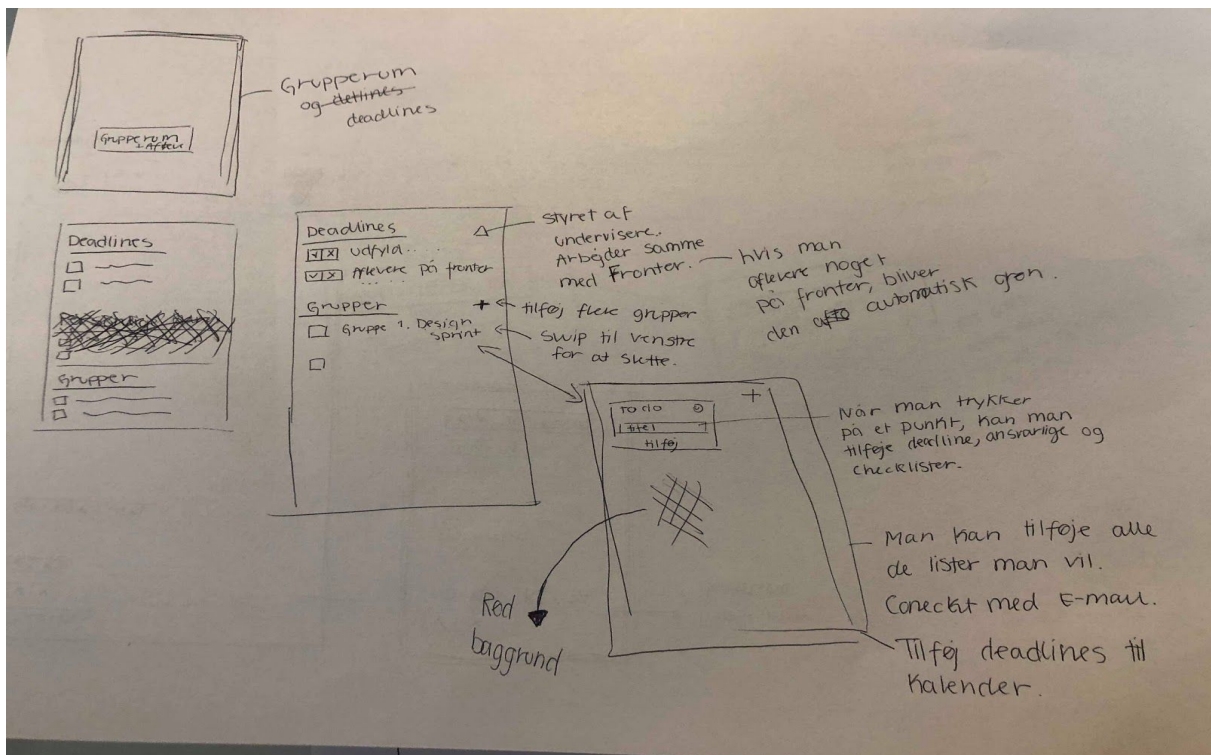 Grupperum
og detlines
deadlines
Grupperum
Deadlines
Grupper
Deadlines
Udfyld.....
Aflevere på fronter
Grupper
+
Gruppe 1. Design
sprint
styret af
undervisere.
Arbejder samme
med Fronter.
hvis man
aflevere noget
på fronter, bliver
den automatisk grøn.
tilføj flere grupper
Swip til venstre
for at slette.
+
To do
titel
tilføj
Når man trykker
på et punkt, kan man
tilføje deadline, ansvarlige og
checklister.
Man kan tilføje alle
de lister man vil.
Coneckt med E-mail.
Tilføj deadlines til
kalender.
Red
baggrund